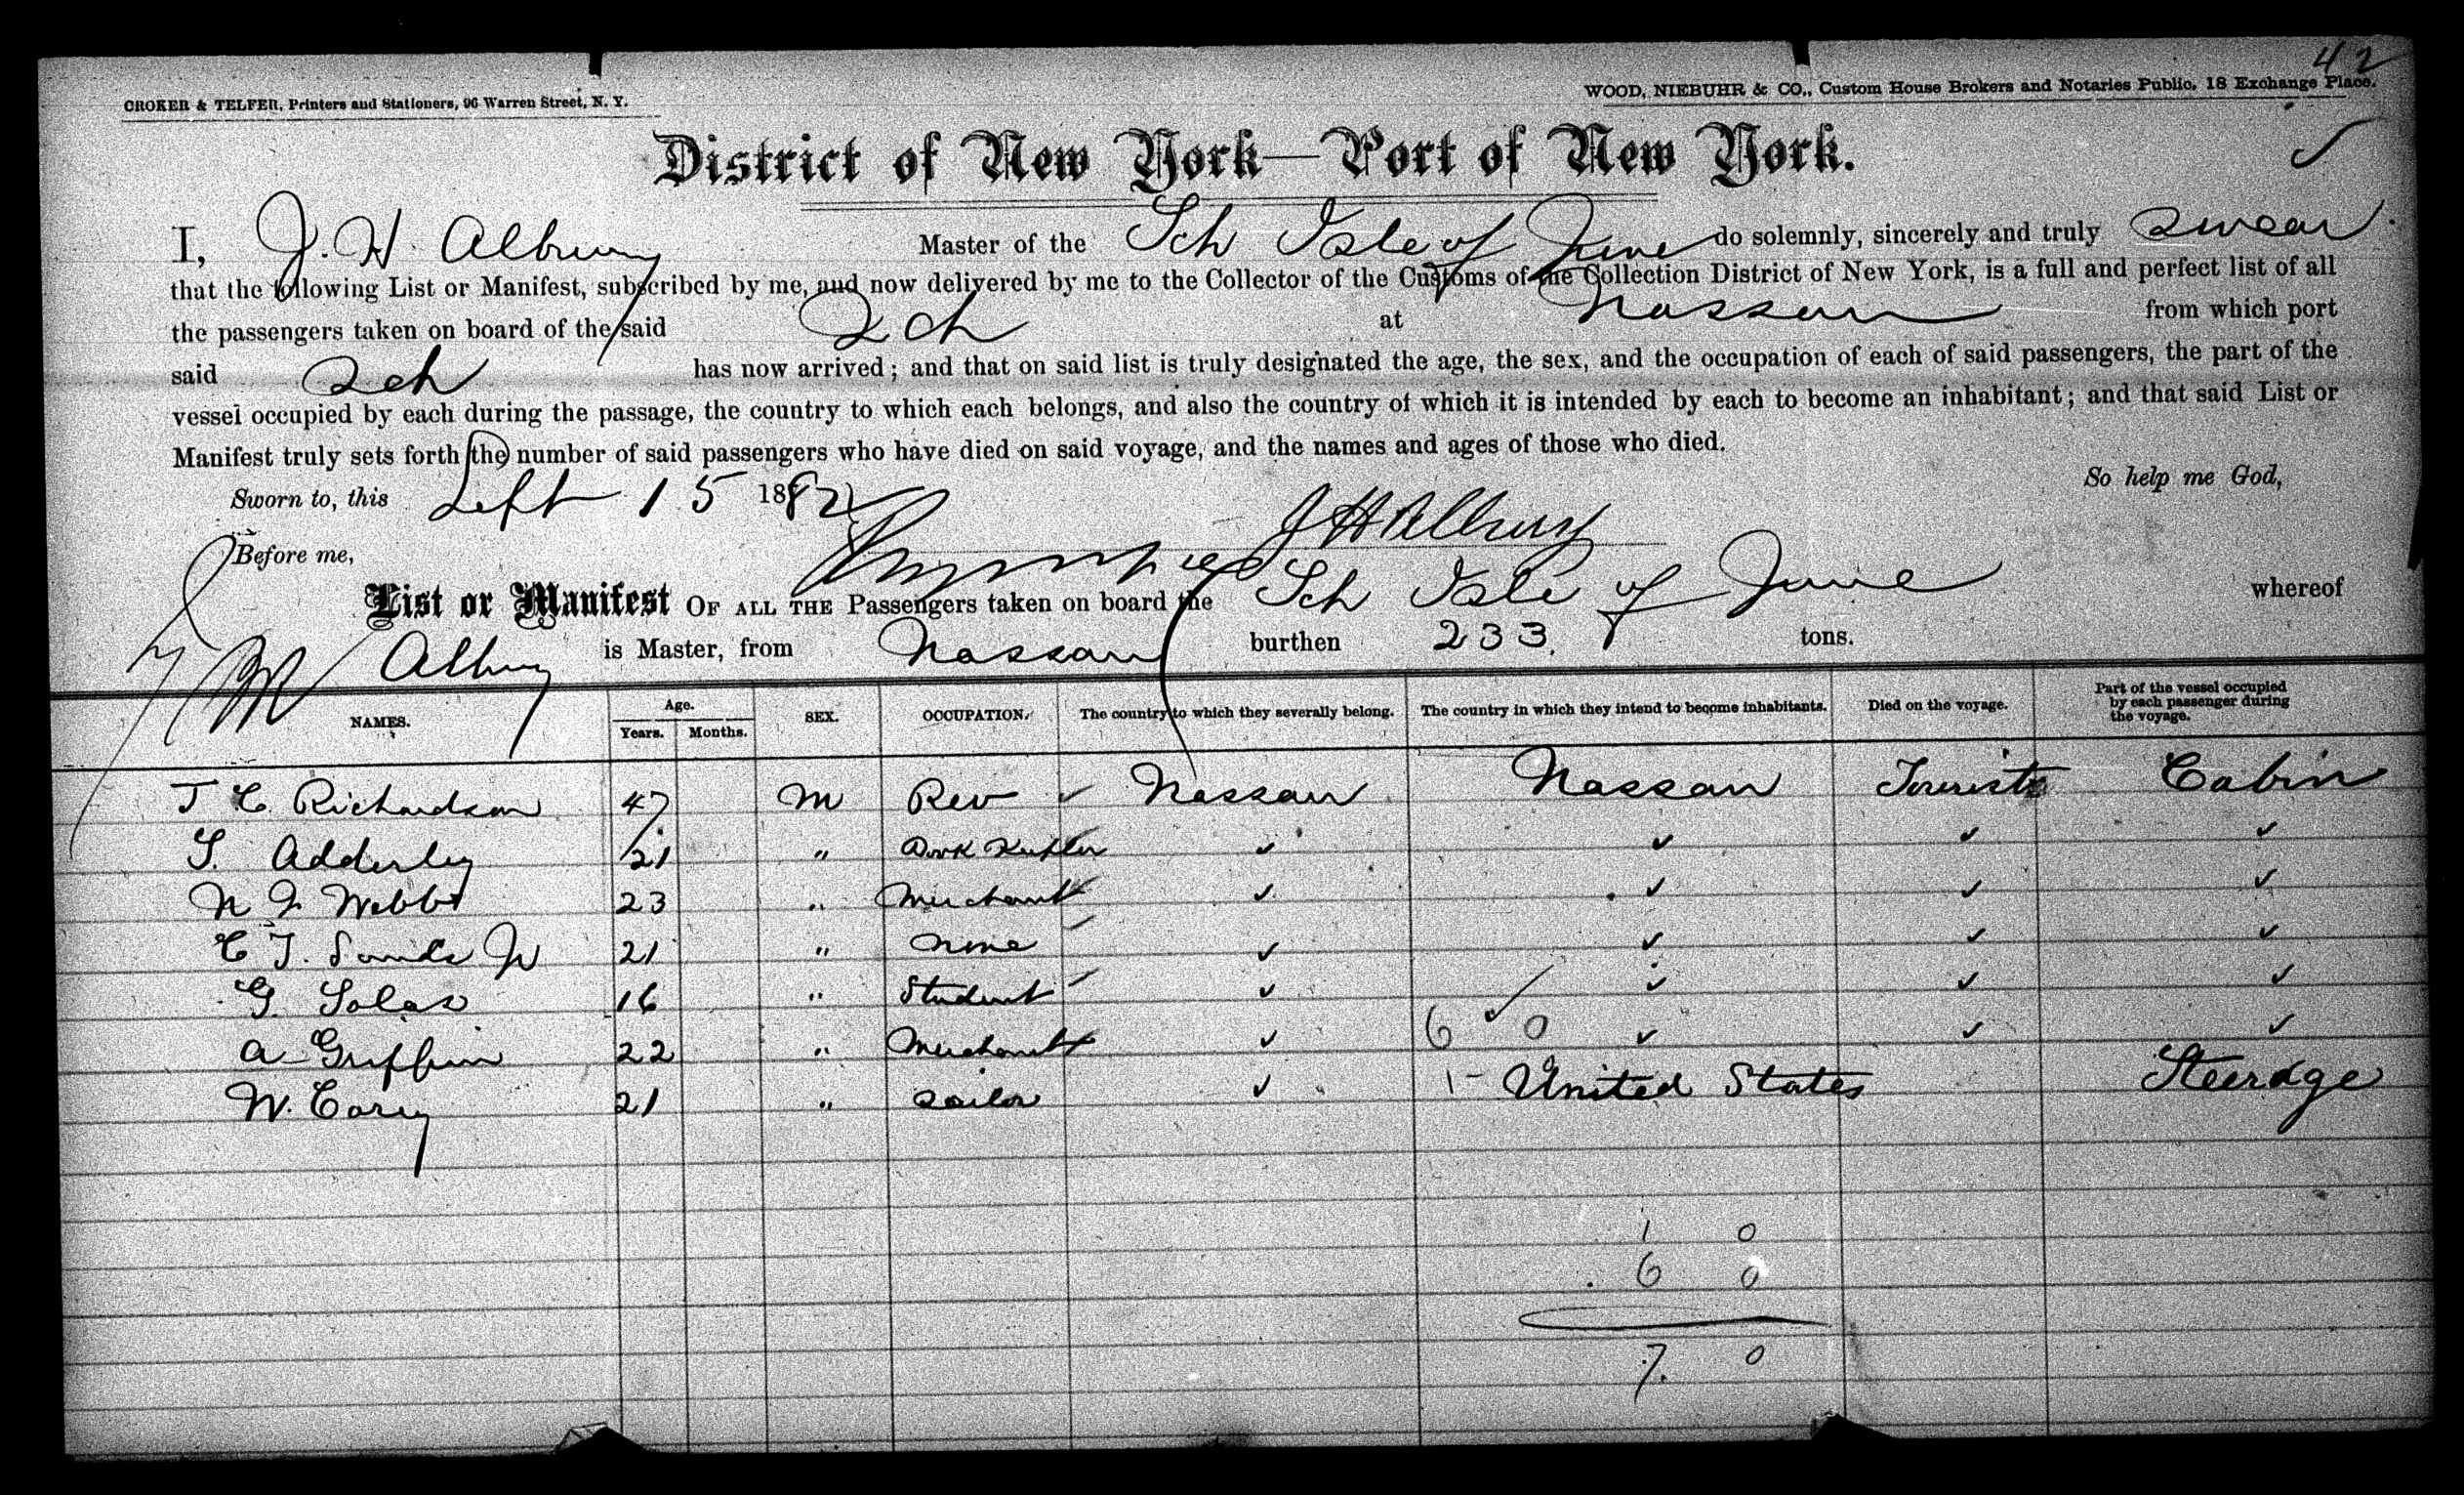 42
CROKER & TELFER, Printers and Stationers, 96 Warren Street, N. Y.
WOOD, NIEBUHR & CO., Custom House Brokers and Notaries Public, 18 Exchange Place.
District of New York—Port of New York.
I, J. H. Albury Master of the Sch Isle of June do solemnly, sincerely and truly swear
that the following List or Manifest, subscribed by me, and now delivered by me to the Collector of the Customs of the Collection District of New York, is a full and perfect list of all
the passengers taken on board of the said Sch at Nassau from which port
said Sch has now arrived; and that on said list is truly designated the age, the sex, and the occupation of each of said passengers, the part of the
vessel occupied by each during the passage, the country to which each belongs, and also the country of which it is intended by each to become an inhabitant; and that said List or
Manifest truly sets forth the number of said passengers who have died on said voyage, and the names and ages of those who died.
So help me God,
Sworn to, this Sept 15 1882
J H Albury
Before me,
List or Manifest OF ALL THE Passengers taken on board the Sch Isle of June whereof
Albury is Master, from Nassau burthen 233. tons.
NAMES. Age. Years. Months. SEX. OCCUPATION. The country to which they severally belong. The country in which they intend to become inhabitants. Died on the voyage. Part of the vessel occupied by each passenger during the voyage.
J C Richardson 47 M Rev Nassau Nassau Tourist Cabin
S. Adderley 21 " ✓ ✓ ✓ ✓
N J Webb 23 " Merchant ✓ ✓ ✓ ✓
C T. Sands Jr 21 " None ✓ ✓ ✓ ✓
G. Solas 16 " Student ✓ ✓ ✓ ✓
A Griffin 22 " Merchant ✓ 6 0 ✓ ✓ ✓
W. Carey 21 " Sailor ✓ 1 - United States Steerage
1 0
6 0
7. 0